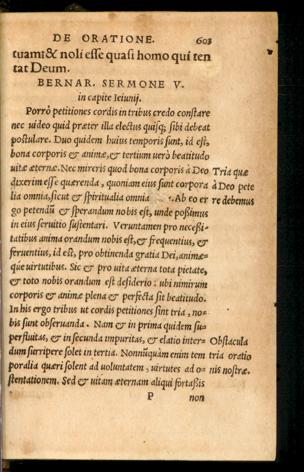 DE ORATIONE. 603
tuam: & noli esse quasi homo qui ten
tat Deum.
BERNAR. SERMONE V.
in capite Ieiunij.
Porrò petitiones cordis in tribus credo constare
nec uideo quid præter illa electus quisq; sibi debeat
postulare. Duo quidem huius temporis sunt, id est,
bona corporis & animæ, & tertium uerò beatitudo
uitæ æternæ. Nec mireris quod bona corporis à Deo
dixerim esse quærenda, quoniam eius sunt corpora
lia omnia, sicut & spiritualia omnia. Ab eo er
go petendū & sperandum nobis est, unde possimus
in eius seruitio sustentari. Veruntamen pro necessi-
tatibus anima orandum nobis est, & frequentius, &
feruentius, id est, pro obtinenda gratia Dei, animæ-
que uirtutibus. Sic & pro uita æterna tota pietate,
& toto nobis orandum est desiderio: ubi nimirum
corporis & animæ plena & perfecta sit beatitudo.
In his ergo tribus ut cordis petitiones sint tria, no-
bis sunt obseruanda. Nam & in prima quidem su-
perfluitas, & in secunda impuritas, & elatio inter-
dum surripere solet in tertia. Nonnūquàm enim tem
poralia quæri solent ad uoluntatem, uirtutes ad o-
stentationem. Sed & uitam æternam aliqui fortassis
P non
Tria quæ
à Deo pete
re debemus
Obstacula
tria oratio
nis nostræ.